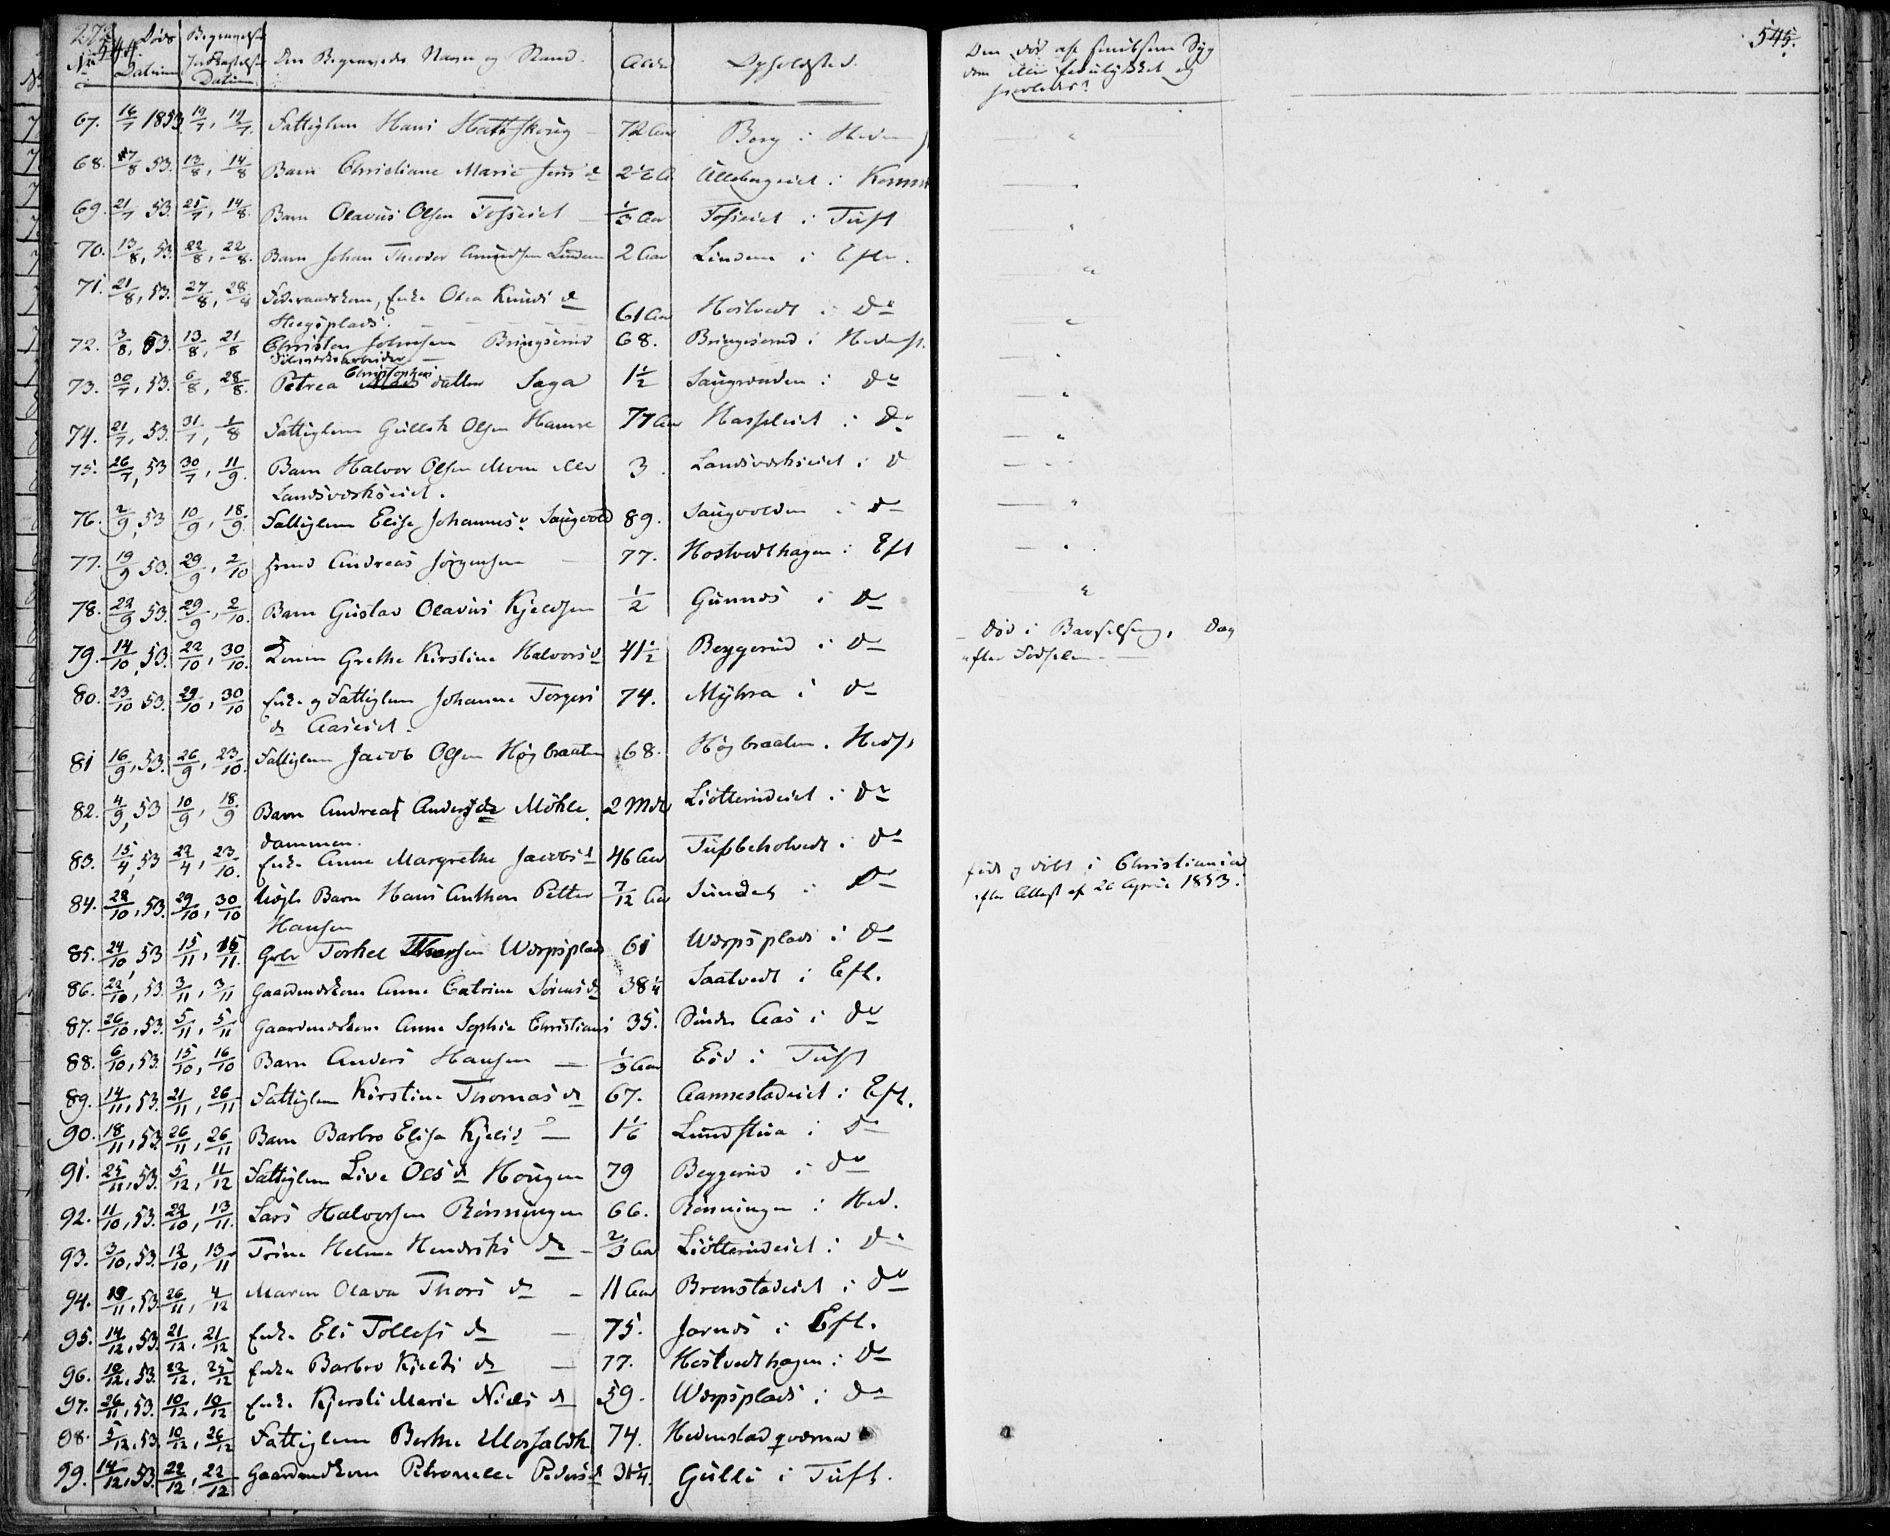 272
544. 545.
No Døds Datum Begravelse Jordfæstelse Datum Den Begravedes Navn og Stand. Alder Opholdsted.
Den død af smitsom Syg
dom eller forulykket og
hvorledes?
67. 16/7 1853 19/7, 19/7. Fattiglem Hans Hattskoug — 72 Aar Berg i Heden
68. 7/8 53. 13/8, 14/8 Barn Christiane Marie Jens d 2 1/2 A Ullebergeiet i Komn
69. 21/7 53. 25/7, 14/8. Barn Olavus Olsen Tosseiet — 1/3 Aar Tosseiet i Tuft
70. 13/8, 53. 22/8, 22/8. Barn Johan Theodor Amundsen Lindem 2 Aar Lindem i Efte.
71. 21/8, 53. 27/8, 28/8 Føderaadskone, Enke Olea Knuds d
Heegsplads. 61 Aar Hostvedt i Do
72. 3/8, 53. 13/8, 21/8 Christen Johnsen Bringserud 68. Bringserud i Hedenst.
Sølvverksarbeider —
73. 30/7, 53. 6/8, 28/8. Petrea Christophers datter Saga 1 1/2 Saugvenden i Do
74. 21/7, 53. 31/7, 1/8 Fattiglem Gullek Olsen Hamre 77 Aar Hasseleiet i Do
75. 26/7, 53 30/7, 11/9. Barn Halvor Olsen Moen eller
Landsverkseiet. 3. Landsverkseiet i D
76. 2/9, 53 10/9, 18/9. Fattiglem Elise Johannes d Saugvold 89. Saugvolden i D
77. 19/9 53. 29/9, 2/10 Hmd Andreas Jørgensen — 77. Hostvedthagen i Eft
78. 22/9 53. 29/9, 2/10. Barn Gustav Olavus Kjeldsen 1/2 Gunnes i Do
79. 14/10, 53. 22/10, 30/10. Konen Grethe Kirstine Halvors d 41 1/2 Beggerud i Do
— død i Barselseng, Dag
efter Fødselen. —
80. 23/10 53. 29/10, 30/10 Enke og Fattiglem Johanne Torgers
d Aaseiet. 74. Myhra i Do
81 16/9, 53. 26/9, 23/10. Fattiglem Jacob Olsen Høgbraaten 68. Høgbraaten i Hedst
82. 4/9, 53 10/9, 18/9 Barn Andreas Anders dr Möhle
dammen. 2 Mdr Liøtterudeiet i Do
83. 15/4, 53 22/4, 23/10. Enke Anne Margrethe Jacobs d 46 Aar Tufteholvedt i Do
84. 22/10, 53. 29/10, 30/10 Uægte Barn Hans Anthon Petter
Hansen 7/12 Aar Sundet i Do
født og døbt i Christiania
efter Attest af 26 April 1853.
85. 24/10 53 15/11, 15/11. Gmd Torkel Thorsen Værpsplads 61 Værpsplads i Do
86. 22/10, 53. 3/11, 3/11 Gaardmdskone Anne Catrine Sørens d 38 1/4 Saatvedt i Eft.
87. 26/10, 53. 5/11, 5/11 Gaardmdskone Anne Sophie Christians 35. Søndre Aas i Do
88. 6/10, 53. 15/10, 16/10 Barn Anders Hansen — 1/3 Aar Eød i Tuft
89. 14/11, 53. 21/11, 26/11 Fattiglem Kirstine Thomas d 67. Aannestadeiet i Eft.
90. 18/11, 53. 26/11, 26/11 Barn Barbro Elisa Kjels d — 1 1/6 Lundstua i Do
91. 25/11, 53. 5/12, 11/12 Fattiglem Live Ols d Hougen 79 Beggerud i Do
92. 11/10, 53. 22/10, 13/11. Lars Halvorsen Rønningen 66. Rønningen i Hed.
93. 3/10, 53. 12/10, 13/11 Trine Helene Hendriks d — 2/3 Aar Liøtterudeiet i Do
94. 19/11, 53. 26/11, 4/12 Maren Olava Thors d — 11 Aar Brenstadeiet i Do
95. 14/12, 53. 21/12, 21/12 Enke Eli Tollefs d — 75. Jarnæs i Eft.
96. 10/12, 53. 22/12, 25/12 Enke Barbro Kjelds d — 77. Hostvedthagen i Do
97. 26/11, 53. 10/12, 10/12 Enke Kjersti Marie Niels d 59. Værpsplads i Do
98. 5/12, 53. 10/12, 26/12 Fattiglem Berthe Ulossaldh 74. Hedenstad qværna
99. 14/12, 53. 22/12, 22/12 Gaardmdskone Petronelle Peders d 31 1/4. Gulli i Tuft.